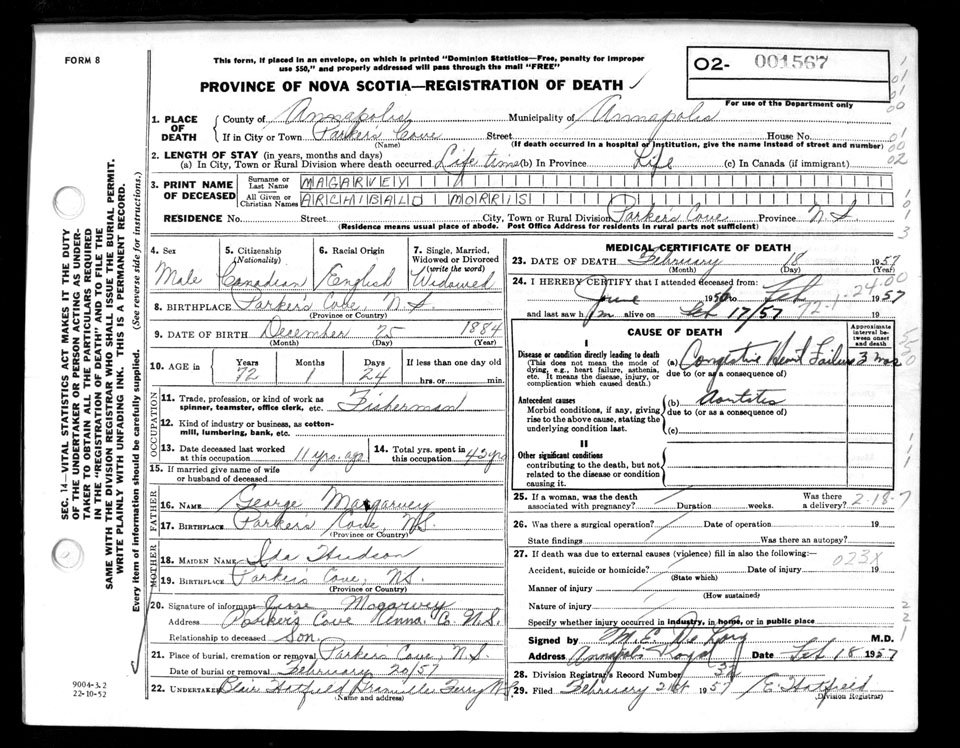 FORM 8
This form, if placed in an envelope, on which is printed "Dominion Statistics—Free, penalty for improper
use $50," and properly addressed will pass through the mail "FREE"
PROVINCE OF NOVA SCOTIA—REGISTRATION OF DEATH
O2- 001567
For use of the Department only
1. PLACE OF DEATH
County of Annapolis Municipality of Annapolis
If in City or Town Parker's Cove Street House No.
(Name) (If death occurred in a hospital or institution, give the name instead of street and number)
2. LENGTH OF STAY (in years, months and days)
(a) In City, Town or Rural Division where death occurred Life time (b) In Province Life (c) In Canada (if immigrant)
3. PRINT NAME OF DECEASED
Surname or Last Name MAGARVEY
All Given or Christian Names ARCHIBALD MORRIS
RESIDENCE No. Street City, Town or Rural Division Parker's Cove Province N.S.
(Residence means usual place of abode. Post Office Address for residents in rural parts not sufficient)
4. Sex
Male
5. Citizenship
(Nationality)
Canadian
6. Racial Origin
English
7. Single, Married,
Widowed or Divorced
(write the word)
Widowed
8. BIRTHPLACE Parker's Cove, N S
(Province or Country)
9. DATE OF BIRTH December 25 1884
(Month) (Day) (Year)
10. AGE in Years Months Days If less than one day old
72 1 24 hrs. or min.
OCCUPATION
11. Trade, profession, or kind of work as
spinner, teamster, office clerk, etc. Fisherman
12. Kind of industry or business, as cotton-
mill, lumbering, bank, etc.
13. Date deceased last worked
at this occupation 11 yrs. ago
14. Total yrs. spent in
this occupation 45 yrs
15. If married give name of wife
or husband of deceased
FATHER
16. NAME George Margarvey
17. BIRTHPLACE Parker's Cove, N.S.
(Province or Country)
MOTHER
18. MAIDEN NAME Ida Hudson
19. BIRTHPLACE Parker's Cove, N.S.
(Province or Country)
20. Signature of informant Mcgarvey
Address Parker's Cove Anna. Co. N.S.
Relationship to deceased Son.
21. Place of burial, cremation or removal Parker's Cove, N.S.
Date of burial or removal February 20/57
22. UNDERTAKER Blair Hatfield Granville Ferry N.S.
(Name and address)
MEDICAL CERTIFICATE OF DEATH
23. DATE OF DEATH February 18 1957
(Month) (Day) (Year)
24. I HEREBY CERTIFY that I attended deceased from:
June 1956 to Feb 1957
and last saw him alive on Feb 17/57 19
72-1-24.00
CAUSE OF DEATH
Approximate
interval be-
tween onset
and death
I
Disease or condition directly leading to death
(This does not mean the mode of
dying, e.g., heart failure, asthenia,
etc. It means the disease, injury, or
complication which caused death.)
(a) Congestive Heart Failure 3 mos
due to (or as a consequence of)
Antecedent causes
Morbid conditions, if any, giving
rise to the above cause, stating the
underlying condition last.
(b) Aortitis
due to (or as a consequence of)
(c)
II
Other significant conditions
contributing to the death, but not
related to the disease or condition
causing it.
25. If a woman, was the death
associated with pregnancy? Duration weeks. Was there
a delivery?
2-18-7
26. Was there a surgical operation? Date of operation 19
State findings Was there an autopsy?
27. If death was due to external causes (violence) fill in also the following:—
023X
Accident, suicide or homicide? Date of injury 19
(State which)
Manner of injury
(How sustained)
Nature of injury
Specify whether injury occurred in industry, in home, or in public place
Signed by M.E. De Long M.D.
Address Annapolis Royal Date Feb 18 1957
28. Division Registrar's Record Number
29. Filed February 21st 1957 E. Hatfield
Division Registrar)
SEC. 14—VITAL STATISTICS ACT MAKES IT THE DUTY
OF THE UNDERTAKER OR PERSON ACTING AS UNDER-
TAKER TO OBTAIN ALL THE PARTICULARS REQUIRED
IN THE "REGISTRATION OF DEATH" AND TO FILE THE
SAME WITH THE DIVISION REGISTRAR WHO SHALL ISSUE THE BURIAL PERMIT.
WRITE PLAINLY WITH UNFADING INK. THIS IS A PERMANENT RECORD.
Every item of information should be carefully supplied. (See reverse side for instructions.)
9004-3.2
22-10-52